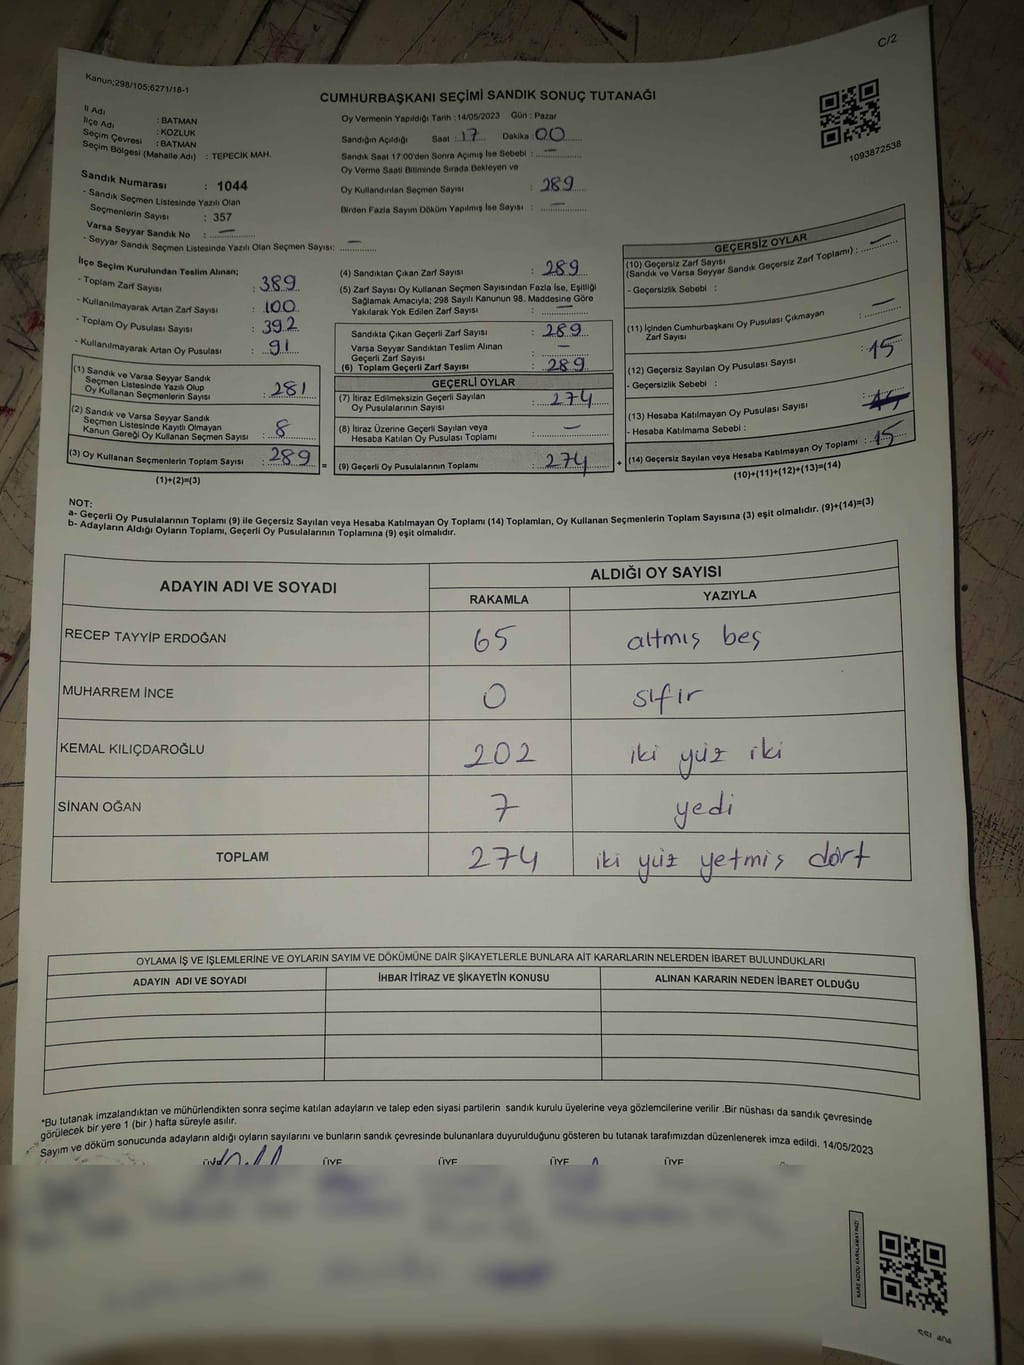 C/2
Kanun;298/105;6271/18-1
CUMHURBAŞKANI SEÇİMİ SANDIK SONUÇ TUTANAĞI
1093872538
İl Adı : BATMAN
İlçe Adı : KOZLUK
Seçim Çevresi : BATMAN
Seçim Bölgesi (Mahalle Adı) : TEPECIK MAH.
Sandık Numarası : 1044
- Sandık Seçmen Listesinde Yazılı Olan
Seçmenlerin Sayısı : 357
Varsa Seyyar Sandık No : —
- Seyyar Sandık Seçmen Listesinde Yazılı Olan Seçmen Sayısı: —
Oy Vermenin Yapıldığı Tarih :14/05/2023 Gün : Pazar
Sandığın Açıldığı Saat : 17 Dakika : 00
Sandık Saat 17:00'den Sonra Açımış İse Sebebi : —
Oy Verme Saati Bitiminde Sırada Bekleyen ve
Oy Kullandırılan Seçmen Sayısı : 289
Birden Fazla Sayım Döküm Yapılmış İse Sayısı : —
İlçe Seçim Kurulundan Teslim Alınan;
- Toplam Zarf Sayısı : 389
- Kullanılmayarak Artan Zarf Sayısı : 100
- Toplam Oy Pusulası Sayısı : 392
- Kullanılmayarak Artan Oy Pusulası : 91
(1) Sandık ve Varsa Seyyar Sandık
Seçmen Listesinde Yazılı Olup
Oy Kullanan Seçmenlerin Sayısı : 281
(2) Sandık ve Varsa Seyyar Sandık
Seçmen Listesinde Kayıtlı Olmayan
Kanun Gereği Oy Kullanan Seçmen Sayısı : 8
(3) Oy Kullanan Seçmenlerin Toplam Sayısı : 289 =
(1)+(2)=(3)
(4) Sandıktan Çıkan Zarf Sayısı : 289
(5) Zarf Sayısı Oy Kullanan Seçmen Sayısından Fazla İse, Eşitliği
Sağlamak Amacıyla; 298 Sayılı Kanunun 98. Maddesine Göre
Yakılarak Yok Edilen Zarf Sayısı : —
Sandıkta Çıkan Geçerli Zarf Sayısı : 289
Varsa Seyyar Sandıktan Teslim Alınan
Geçerli Zarf Sayısı : —
(6) Toplam Geçerli Zarf Sayısı : 289
GEÇERLİ OYLAR
(7) İtiraz Edilmeksizin Geçerli Sayılan
Oy Pusulalarının Sayısı : 274
(8) İtiraz Üzerine Geçerli Sayılan veya
Hesaba Katılan Oy Pusulası Toplamı : —
(9) Geçerli Oy Pusulalarının Toplamı : 274 +
GEÇERSİZ OYLAR
(10) Geçersiz Zarf Sayısı
(Sandık ve Varsa Seyyar Sandık Geçersiz Zarf Toplamı) : —
- Geçersizlik Sebebi :
(11) İçinden Cumhurbaşkanı Oy Pusulası Çıkmayan
Zarf Sayısı : —
(12) Geçersiz Sayılan Oy Pusulası Sayısı : 15
- Geçersizlik Sebebi :
(13) Hesaba Katılmayan Oy Pusulası Sayısı :
- Hesaba Katılmama Sebebi :
(14) Geçersiz Sayılan veya Hesaba Katılmayan Oy Toplamı : 15
(10)+(11)+(12)+(13)=(14)
NOT:
a- Geçerli Oy Pusulalarının Toplamı (9) ile Geçersiz Sayılan veya Hesaba Katılmayan Oy Toplamı (14) Toplamları, Oy Kullanan Seçmenlerin Toplam Sayısına (3) eşit olmalıdır. (9)+(14)=(3)
b- Adayların Aldığı Oyların Toplamı, Geçerli Oy Pusulalarının Toplamına (9) eşit olmalıdır.
ADAYIN ADI VE SOYADI ALDIĞI OY SAYISI
RAKAMLA YAZIYLA
RECEP TAYYİP ERDOĞAN 65 altmış beş
MUHARREM İNCE 0 sıfır
KEMAL KILIÇDAROĞLU 202 iki yüz iki
SİNAN OĞAN 7 yedi
TOPLAM 274 iki yüz yetmiş dört
OYLAMA İŞ VE İŞLEMLERİNE VE OYLARIN SAYIM VE DÖKÜMÜNE DAİR ŞİKAYETLERLE BUNLARA AİT KARARLARIN NELERDEN İBARET BULUNDUKLARI
ADAYIN ADI VE SOYADI İHBAR İTİRAZ VE ŞİKAYETİN KONUSU ALINAN KARARIN NEDEN İBARET OLDUĞU
*Bu tutanak imzalandıktan ve mühürlendikten sonra seçime katılan adayların ve talep eden siyasi partilerin sandık kurulu üyelerine veya gözlemcilerine verilir .Bir nüshası da sandık çevresinde
görülecek bir yere 1 (bir ) hafta süreyle asılır.
Sayım ve döküm sonucunda adayların aldığı oyların sayılarını ve bunların sandık çevresinde bulunanlara duyurulduğunu gösteren bu tutanak tarafımızdan düzenlenerek imza edildi. 14/05/2023
ÜYE ÜYE ÜYE ÜYE
KARE KODU KARALAMAYINIZ!